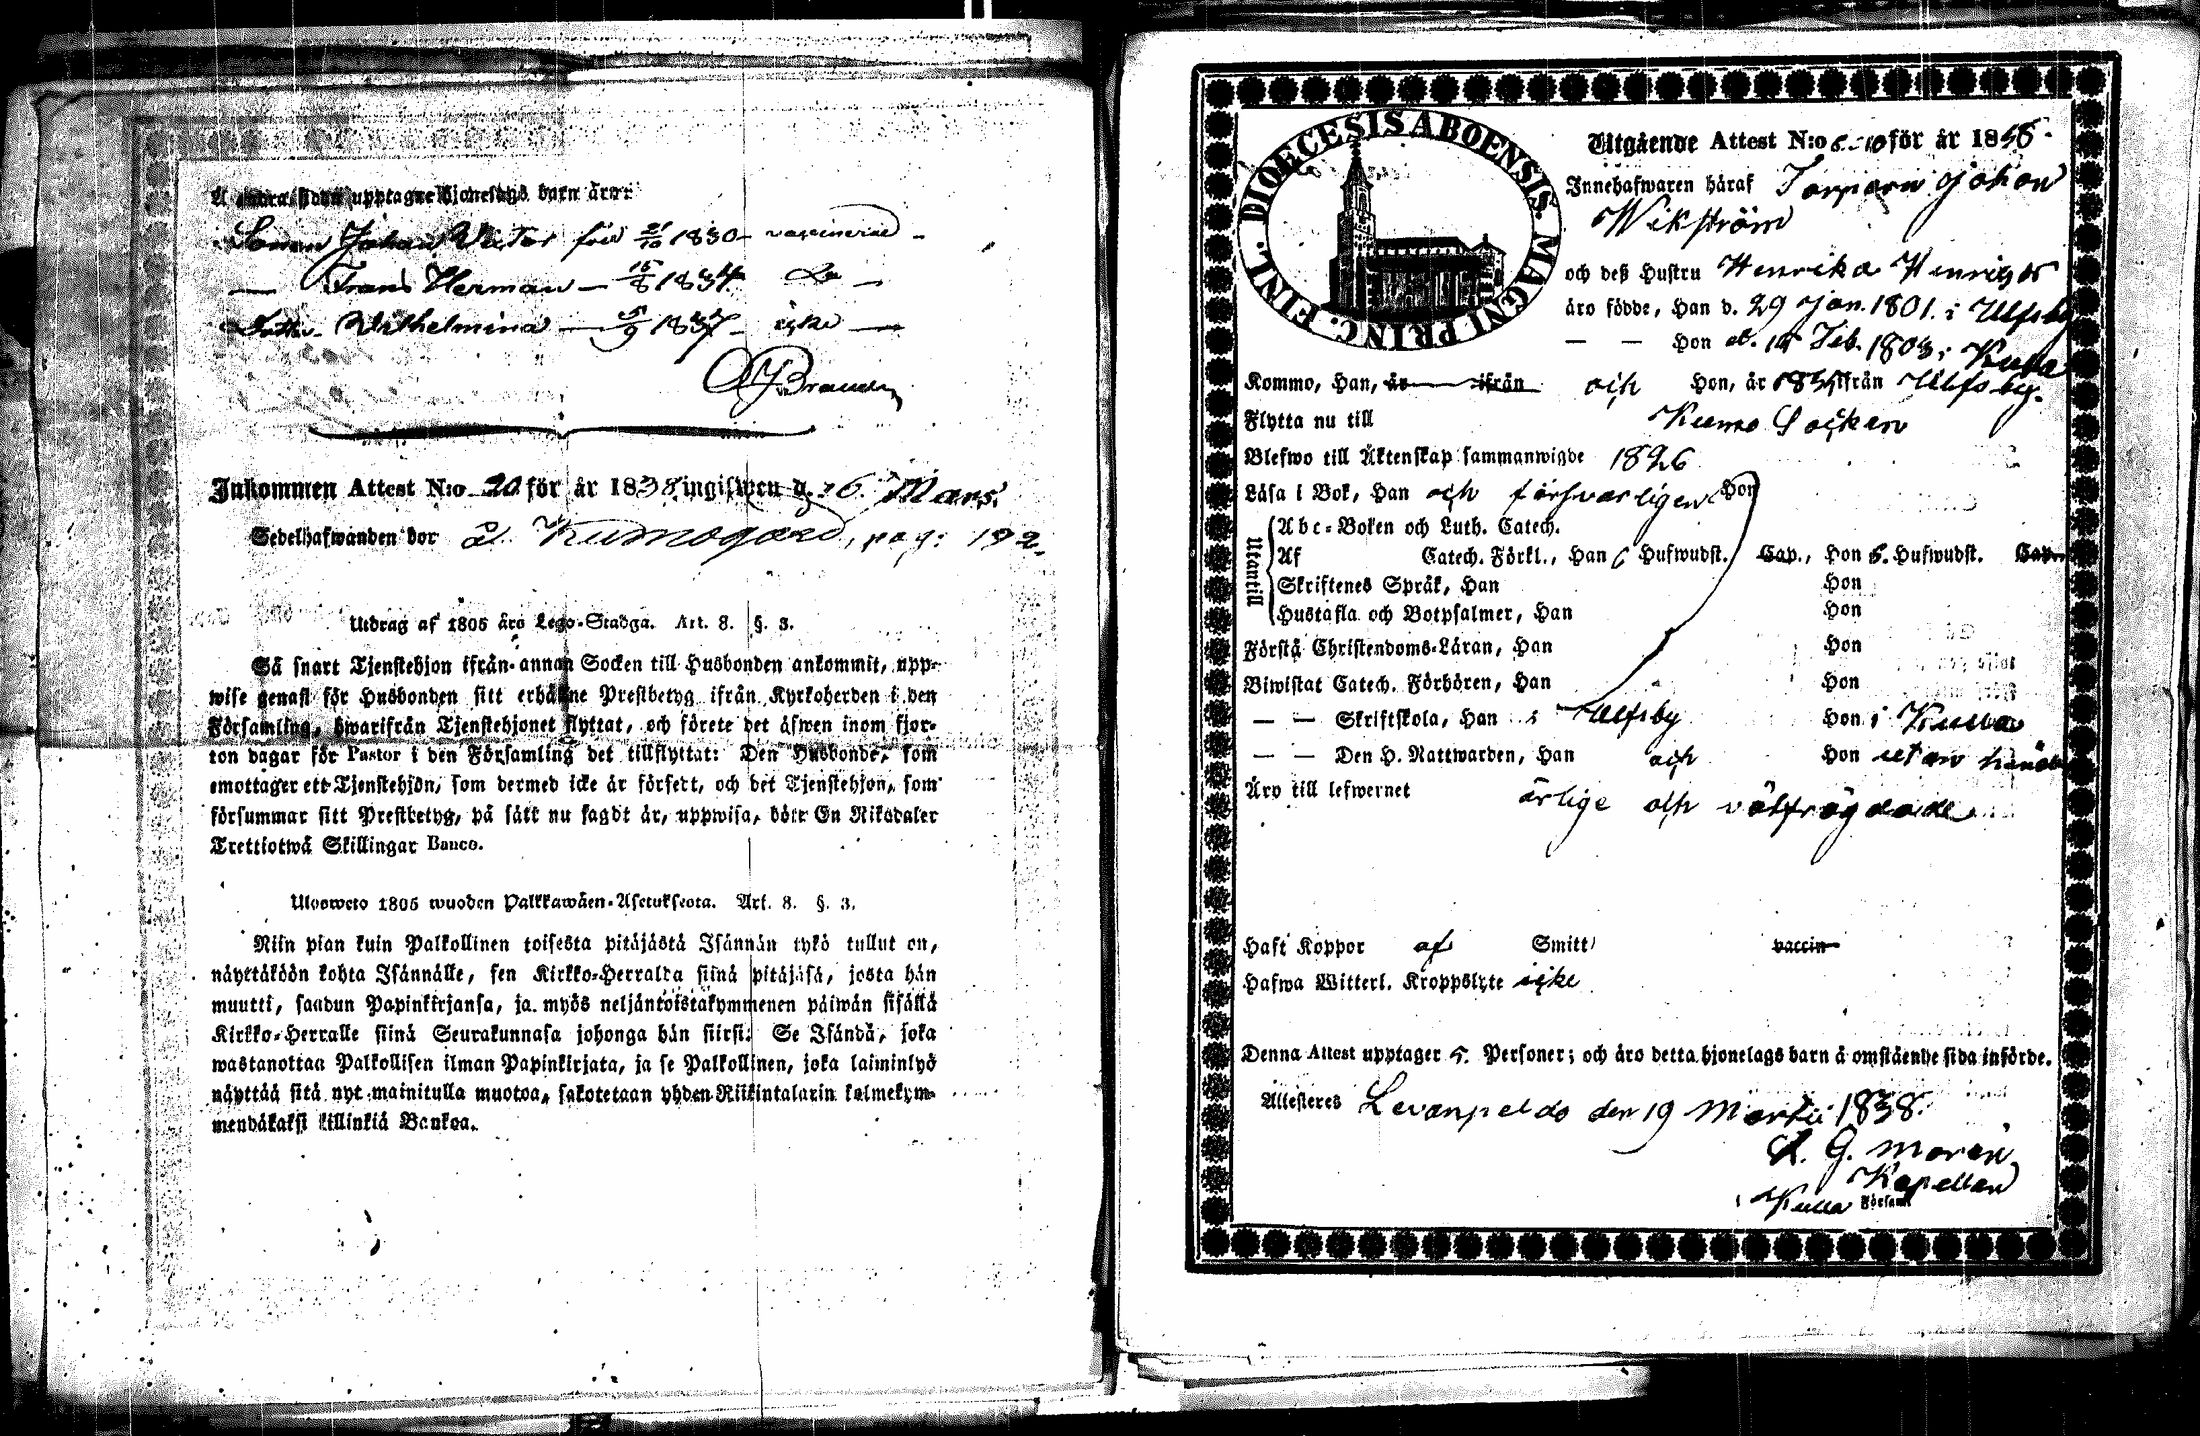 å andra sidan upptagne hjonelags barn äro:
Sonen Johan Victor född 21/10 1830 - vaccinerad -
— Frans Herman — 15/8 1834 Do —
Dottr. Wilhelmina — 5/9 1837 - icke —
Inkommen Attest N:o 20 för år 1838 ingifwen d. 26 Mars.
Sedelhafwanden bor å Kumogård, pag: 192.
Utdrag af 1805 års Lego-Stadga. Art. 8. §. 3.
Så snart Tjenstehjon ifrån annan Socken till Husbonden ankommit, upp-
wise genast för Husbonden sitt erhållne Prestbetyg ifrån Kyrkoherden i den
Församling, hwarifrån Tjenstehjonet flyttat, och förete det äfwen inom fjor-
ton dagar för Pastor i den Församling det tillflyttat: Den Husbonde, som
emottager ett Tjenstehjon, som dermed icke är försedt, och det Tjenstehjon, som
försummar sitt Prestbetyg, på sätt nu sagdt är, uppwisa, böte En Riksdaler
Trettiotwå Skillingar Banco.
Ulosweto 1805 wuoden Palkkawäen-Asetuksesta. Art. 8. §. 3.
Niin pian kuin Palkollinen toisesta pitäjästä Isännän tykö tullut on,
näyttäköön kohta Isännälle, sen Kirkko-Herralda siinä pitäjäsä, josta hän
muutti, saadun Papinkirjansa, ja myös neljäntoistakymmenen päiwän sisällä
Kirkko-Herralle siinä Seurakunnasa johonga hän siirsi: Se Isändä, joka
wastanottaa Palkollisen ilman Papinkirjata, ja se Palkollinen, joka laiminlyö
näyttää sitä nyt mainitulla muotoa, sakotetaan yhden Riikintalarin kolmekym-
mendäkaksi killinkiä Bankoa.
DIOECESIS ABOENSIS. MAGNI PRINC. FINL.
Utgående Attest N:o 6-10 för år 1838.
Innehafwaren häraf Torparn Johan
Wikström
och deß Hustru Henrika Henricsdr
äro födde, Han d. 29 Jan. 1801. i Ulfsby
— — Hon d. 15 Feb. 1803 i Kulla
Kommo, Han, är ifrån och Hon, år ifrån Ulfsby.
Flytta nu till Kumo Socken
Blefwo till Äktenskap sammanwigde 1826
Läsa i Bok, Han och försvarligen Hon
Utantill
Abc-Boken och Luth. Catech.
Af Catech. Förkl., Han 6 Hufwudst. Cap., Hon 6. Hufwudst. Cap.
Skriftenes Språk, Han Hon
Hustafla och Botpsalmer, Han Hon
Förstå Christendoms-Läran, Han Hon
Biwistat Catech. Förhören, Han Hon
— — Skriftskola, Han i Ulfsby Hon i Kulla
— — Den H. Nattwarden, Han och Hon utan
Äro till lefwernet ärlige och välfrägdade
Haft Koppor af Smitt vaccin
Hafwa Witterl. Kroppslyte icke
Denna Attest upptager 5. Personer; och äro detta hjonelags barn å omstående sida införde.
Attesteres Levanpeldo den 19 Martii 1838.
L. G. Morén
Kapellan
i Kulla Församl.